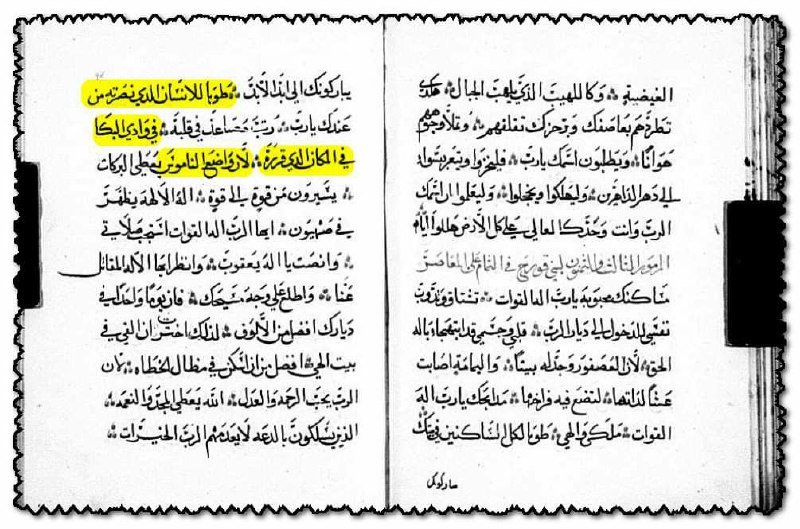 الغيضية ۞ وكاللهيب الذي يلهب الجبال ۞ هكذي
تطردهم بعاصفك وبرجزك تقلقهم ۞ وتملا وجوههم
هوانًا ۞ ويطلبون اسمك يارب ۞ فليخزوا ويتعربسوا
الي دهر الداهرين ۞ وليهلكوا ويخجلوا ۞ وليعلموا ان اسمك
الرب وانت وحدك المعالي علي كل الارض هللوا
المزمور الثالث والثمنون لبني قورح في التمام علي المعاصر
مساكنك محبوبه يارب اله القوات ۞ تشتاق وتذوب
نفسي للدخول الي ديار الرب ۞ قلبي وجسمي قد ابتهجا باله
الحق ۞ لان العصفور وجد له بيتًا ۞ واليمامة اصابت
عشًا لذاتها ۞ لتضع فيه فراخها ۞ مذابحك يارب اله
القوات ۞ ملكي والهي ۞ طوبا لكل الساكنين في بيتك
يباركونك الي ابد الابد ۞ طوبا للانسان الذي نصرته من
عندك يارب ۞ رتب مصاعد في قلبه ۞ في وادي البكا
في المكان الذي قرره ۞ لان واضع الناموس يعطي البركات
يسيرون من قوة الي قوة ۞ اله الالهة يظهر
في صهيون ۞ ايها الرب اله القوات استجب صلاتي
وانصت يا اله يعقوب ۞ وانظر ايها الاله المقاتل
عنا ۞ واطلع علي وجه مسيحك ۞ فان يومًا واحدًا في
ديارك افضل من الالوف ۞ لذلك اخترت ان القي في
بيت الهي ۞ افضل من ان اسكن في مظال الخطاه ۞ لان
الرب يحب الرحمه والعدل ۞ الله يعطي المجد والنعمه ۞
الذين يسلكون بالدعه لا يعدمهم الرب الخيرات ۞